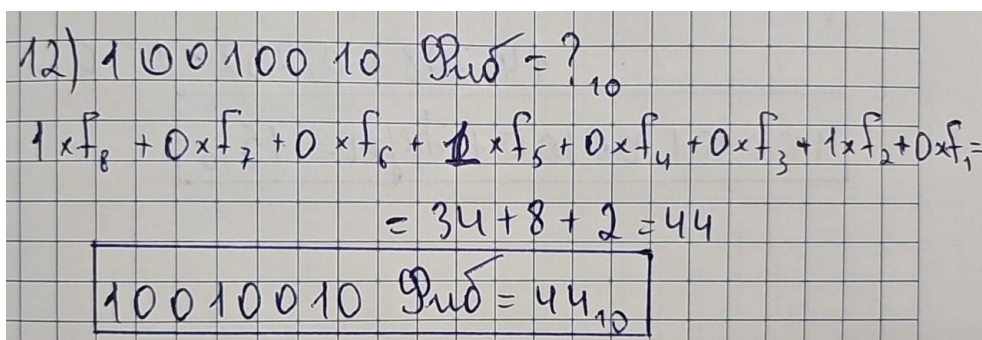 12) 10010010 Фиб = ?₁₀
1×f₈ + 0×f₇ + 0×f₆ + 1×f₅ + 0×f₄ + 0×f₃ + 1×f₂ + 0×f₁ =
= 34 + 8 + 2 = 44
10010010 Фиб = 44₁₀